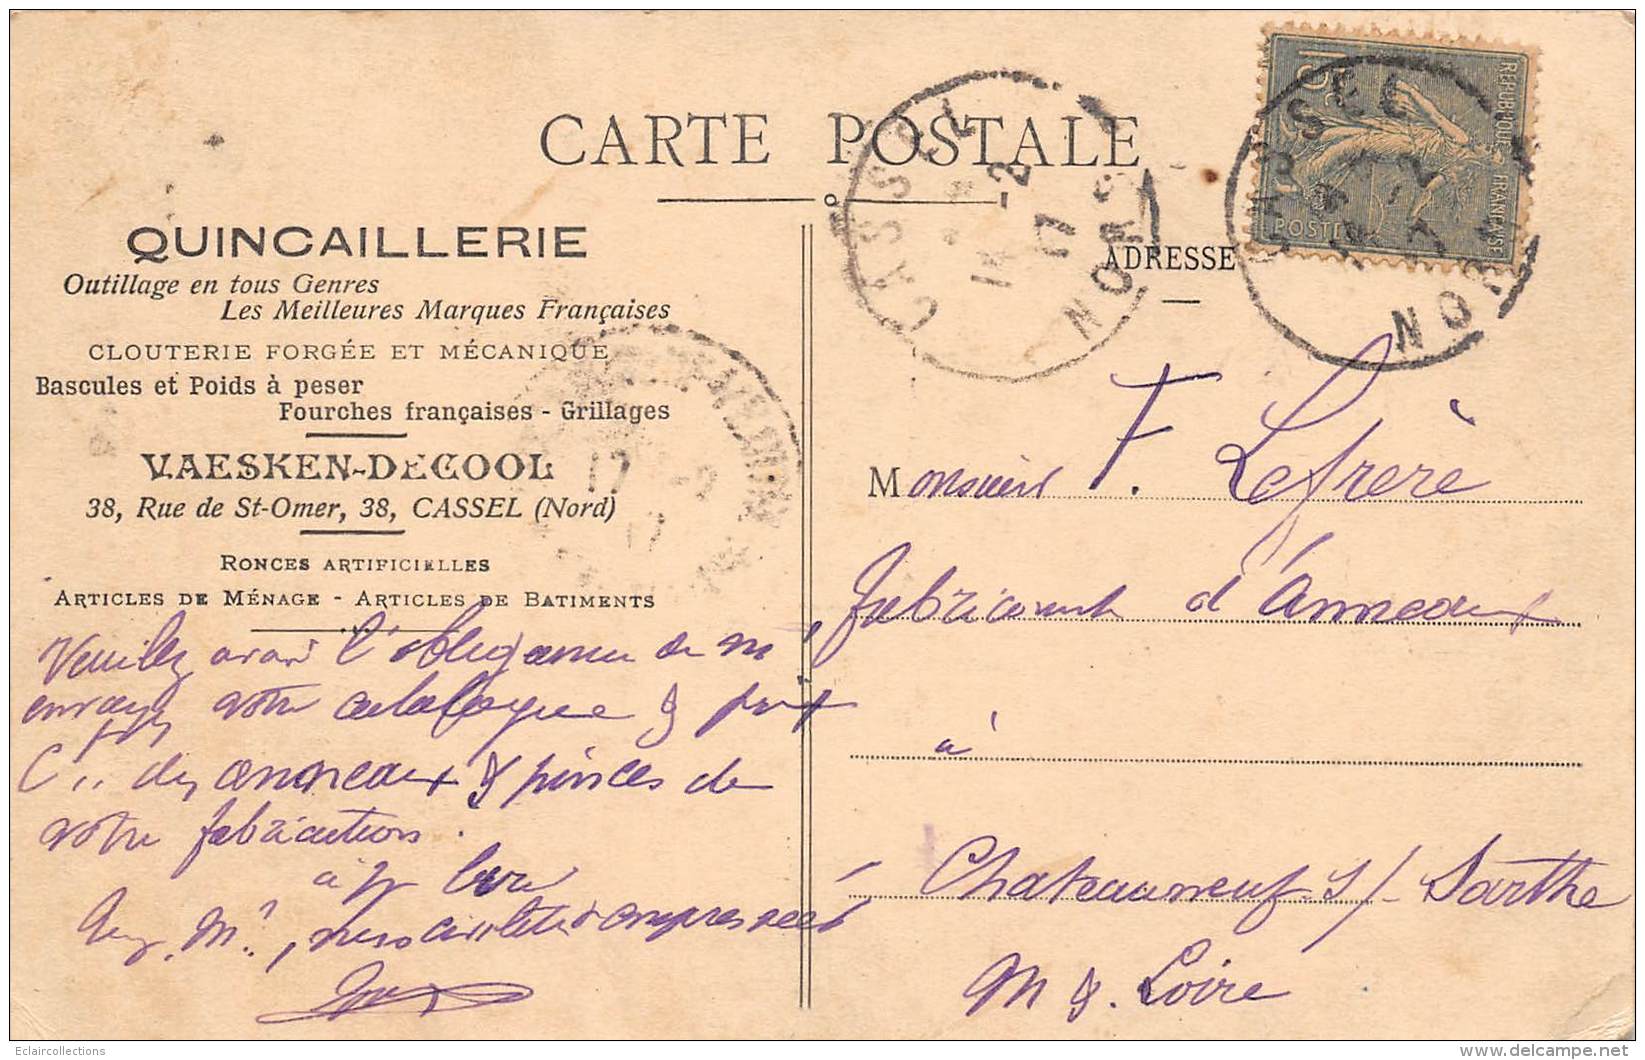 CARTE POSTALE
QUINCAILLERIE
Outillage en tous Genres
Les Meilleures Marques Françaises
CLOUTERIE FORGÉE ET MÉCANIQUE
Bascules et Poids à peser
Fourches françaises - Grillages
VAESKEN-DECOOL
38, Rue de St-Omer, 38, CASSEL (Nord)
RONCES ARTIFICIELLES
ARTICLES DE MÉNAGE - ARTICLES DE BATIMENTS
Veuillez avoir l'obligeance de m'
envoyer votre catalogue & prix
Ct des anneaux & pinces de
votre fabrication.
mes civilités empressées
CASSEL
-2
17
NORD
REPUBLIQUE FRANÇAISE
POSTES
15c
CASSEL
NORD
17 -2
17
ADRESSE
Monsieur F. Lefrère
fabricant d'anneaux
à
Chateauneuf s/ Sarthe
M & Loire
Eclaircollections
www.delcampe.net